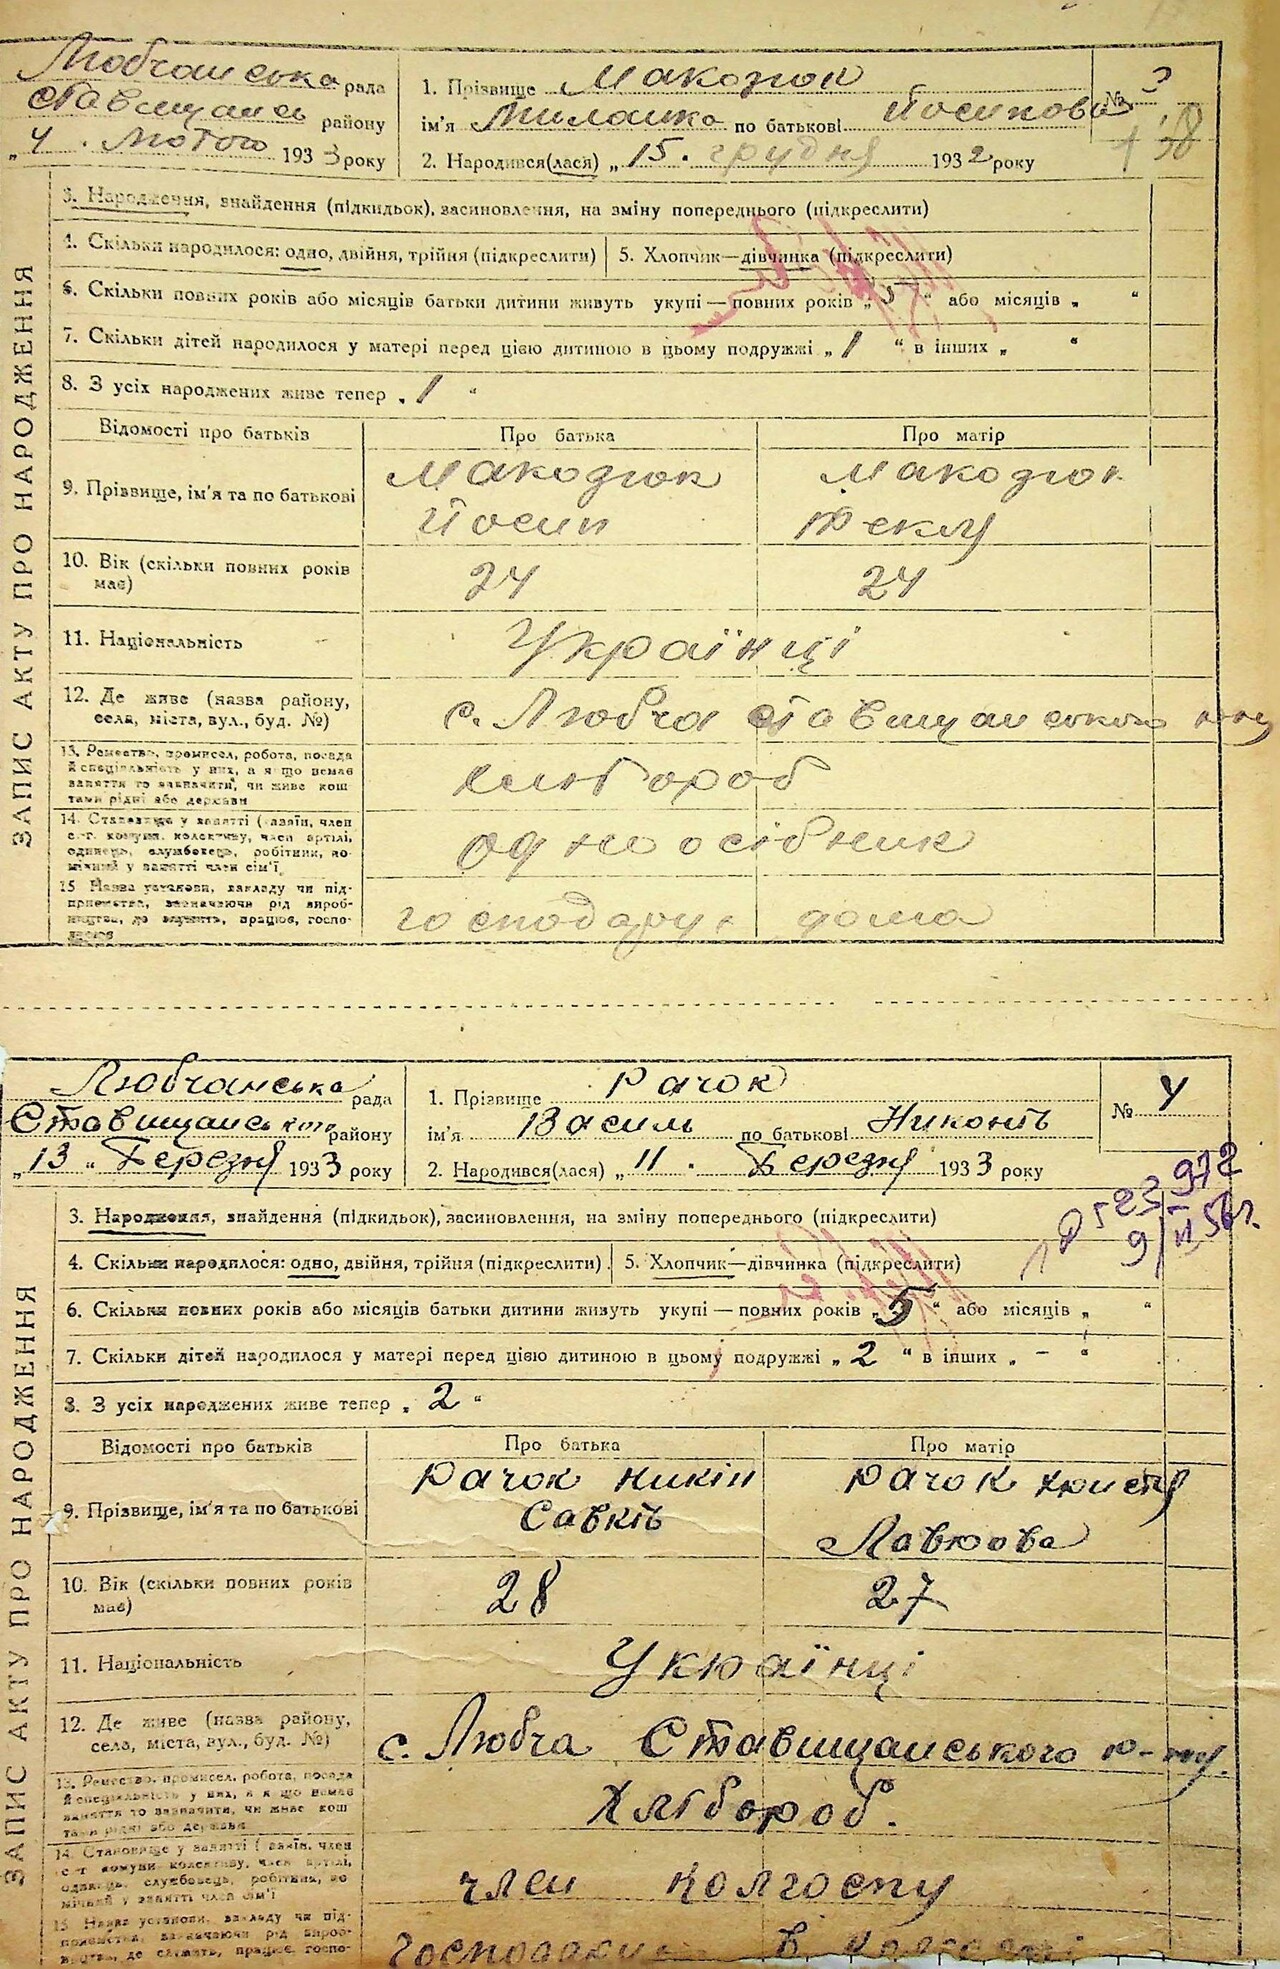 Любчанська рада
Ставищанськ району
„4. Лютого 1933 року
1. Прізвище Макодюк
ім'я по батькові Йосипова
2. Народився(лася) „15. грудня 1932 року
№ 3
ЗАПИС АКТУ ПРО НАРОДЖЕННЯ
3. Народження, знайдення (підкидьок), засиновлення, на зміну попереднього (підкреслити)
4. Скільки народилося: одно, двійня, трійня (підкреслити)
5. Хлопчик—дівчинка (підкреслити)
6. Скільки повних років або місяців батьки дитини живуть укупі — повних років „5“ або місяців „ “
7. Скільки дітей народилося у матері перед цією дитиною в цьому подружжі „1 “ в інших „ “
8. З усіх народжених живе тепер „1 “
Відомості про батьків Про батька Про матір
9. Прізвище, ім'я та по батькові
Макодюк Макодюк
Йосип Текля
10. Вік (скільки повних років має)
24 24
11. Національність Українці
12. Де живе (назва району,
села, міста, вул., буд. №)
с. Любча Ставищанського р-ну
13. Ремество, промисел, робота, посада
й спеціяльність у них, а якщо немає
заняття то зазначити, чи живе кош
тами рідні або держави
хлібороб
14. Становище у занятті (хазяїн, член
с-г. комуни, колективу, член артілі,
одинець, службовець, робітник, по-
мічний у занятті член сім'ї
одноосібник
15 Назва установи, закладу чи під-
приємства, зазначаючи рід вироб-
ництва, де служить, працює, госпо-
дарює
господарує дома
Любчанська рада
Ставищанського району
„13“ Березня 1933 року
1. Прізвище Рачок
ім'я Василь по батькові Никонів
2. Народився(лася) „11. Березня 1933 року
№ 4
523972
9/II 56 г.
ЗАПИС АКТУ ПРО НАРОДЖЕННЯ
3. Народження, знайдення (підкидьок), засиновлення, на зміну попереднього (підкреслити)
4. Скільки народилося: одно, двійня, трійня (підкреслити)
5. Хлопчик—дівчинка (підкреслити)
6. Скільки повних років або місяців батьки дитини живуть укупі — повних років „5“ або місяців „ “
7. Скільки дітей народилося у матері перед цією дитиною в цьому подружжі „2 “ в інших „ – “
8. З усіх народжених живе тепер „2 “
Відомості про батьків Про батька Про матір
9. Прізвище, ім'я та по батькові
Рачок Никін Рачок Христя
Савків
10. Вік (скільки повних років має)
28 27
11. Національність Українці
12. Де живе (назва району,
села, міста, вул., буд. №)
с. Любча Ставищанського р-ну.
13. Ремество, промисел, робота, посада
й спеціяльність у них, а якщо немає
заняття то зазначити, чи живе кош
тами рідні або держави
Хлібороб.
14. Становище у занятті (хазяїн, член
с-г комуни колективу, член артілі,
одинець, службовець, робітник, по
мічний у занятті член сім'ї
член колгоспу
15 Назва установи, закладу чи під-
приємства, зазначаючи рід вироб-
ництва, де служить, працює, госпо-
Господарює в колгоспі